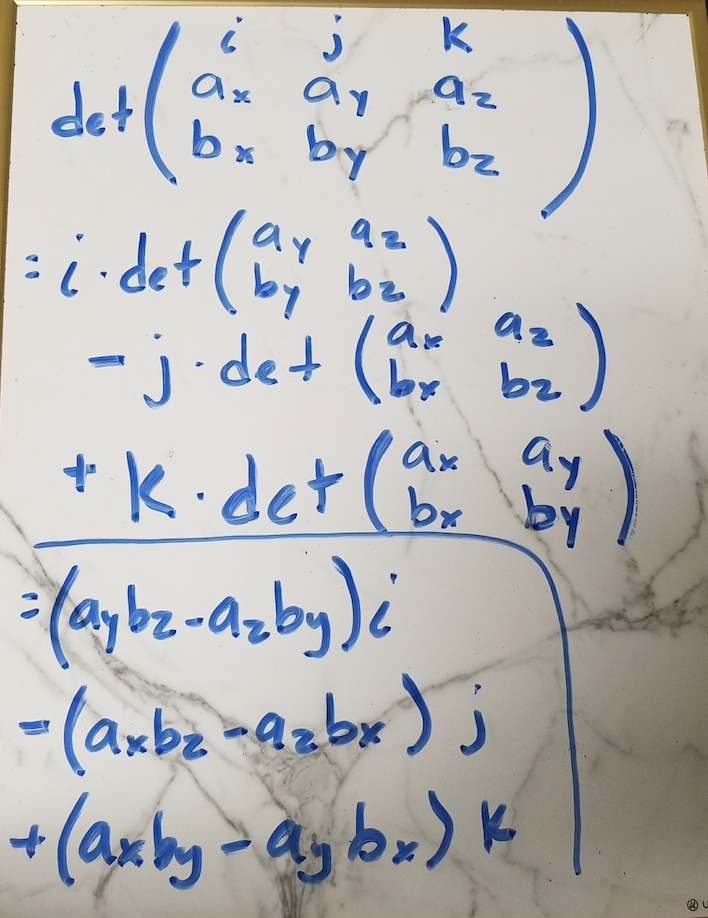 i j k
det ( ax ay az
bx by bz )
= i · det ( ay az
by bz )
- j · det ( ax az
bx bz )
+ k · det ( ax ay
bx by )
= (aybz - azby) i
- (axbz - azbx) j
+ (axby - aybx) k